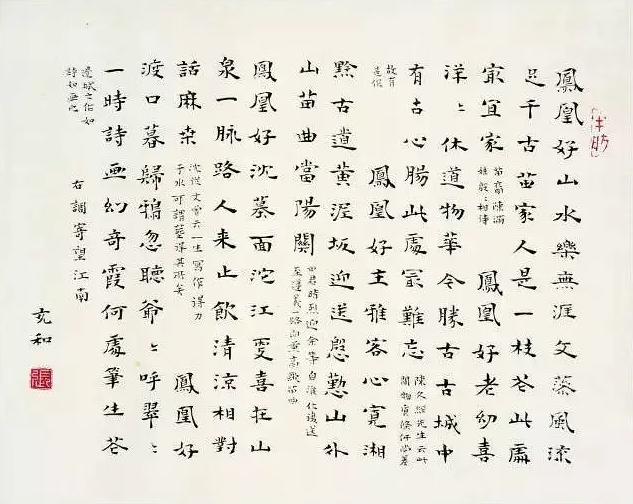 鳳凰好山水樂無涯文藻風流
足千古苗家人是一枝花此處
最宜家
鳳凰好老幼喜
洋洋休道物華今勝古古城中
有古心腸此處最難忘
陳久經先生云所
聞物質條件尚差
故有
是作
鳳凰好主雅客心寬湘
黔古道黃泥坂迎送慇懃山外
山苗曲當陽關
鳳凰好沈墓面沱江更喜在山
泉一脈路人來止飲清涼相對
話麻桑
沈從文嘗云一生寫作得力
于水可謂葬得其所矣
鳳凰好
渡口暮歸鴉忽聽爺爺呼翠翠
一時詩画幻奇霞何處筆生花
邊城之作如
詩如画也
右調寄望江南
充和
張